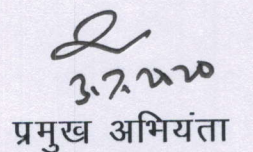 3.7.2020
प्रमुख अभियंता